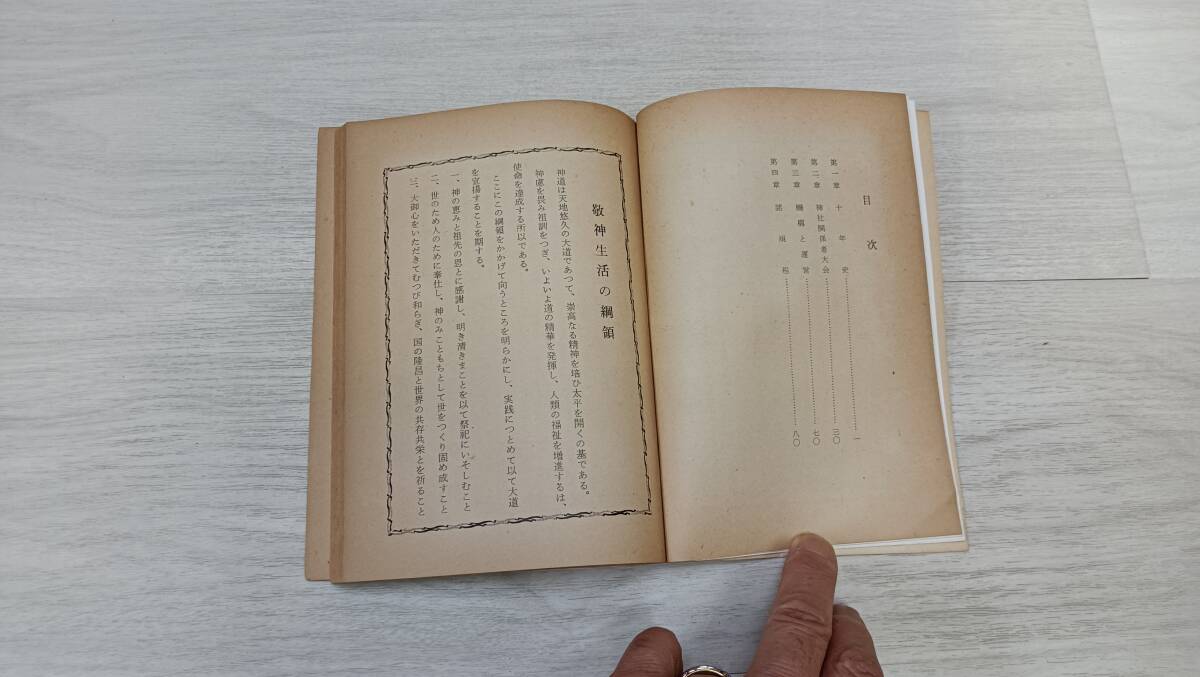 目次
第一章 十年史……………一
第二章 神社関係者大会……………三〇
第三章 機構と運営……………七〇
第四章 諸規程……………八〇
敬神生活の綱領
神道は天地悠久の大道であつて、崇高なる精神を培ひ太平を開くの基である。
神慮を畏み祖訓をつぎ、いよいよ道の精華を発揮し、人類の福祉を増進するは、
使命を達成する所以である。
ここにこの綱領をかかげて向うところを明らかにし、実践につとめて以て大道
を宣揚することを期する。
一、神の恵みと祖先の恩とに感謝し、明き清きまことを以て祭祀にいそしむこと
二、世のため人のために奉仕し、神のみこともちとして世をつくり固め成すこと
三、大御心をいただきてむつび和らぎ、国の隆昌と世界の共存共栄とを祈ること